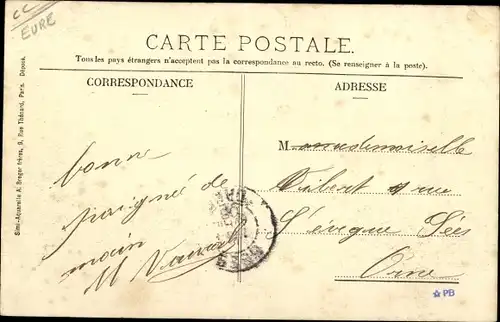 CC
EURE
CARTE POSTALE.
Tous les pays étrangers n'acceptent pas la correspondance au recto. (Se renseigner à la poste).
CORRESPONDANCE
ADRESSE
bonne
poignée de
main
M
Mademoiselle
rue
l'évêque Sées
Orne
Simili-Aquarelle A. Breger frères, 9, Rue Thénard, Paris. Déposé.
PB